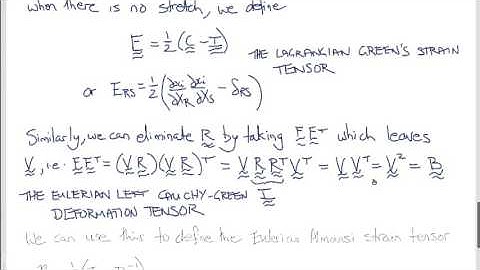 when there is no stretch, we define
E = 1/2 (C - I)
THE LAGRANGIAN GREEN'S STRAIN
TENSOR
or E_RS = 1/2 (∂xi/∂X_R ∂xi/∂X_S - δ_RS)
Similarly, we can eliminate R by taking F F^T which leaves
V, i.e. F F^T = (V R)(V R)^T = V R R^T V^T = V V^T = V^2 = B
I
THE EULERIAN LEFT CAUCHY-GREEN
DEFORMATION TENSOR
We can use this to define the Eulerian Almansi strain tensor